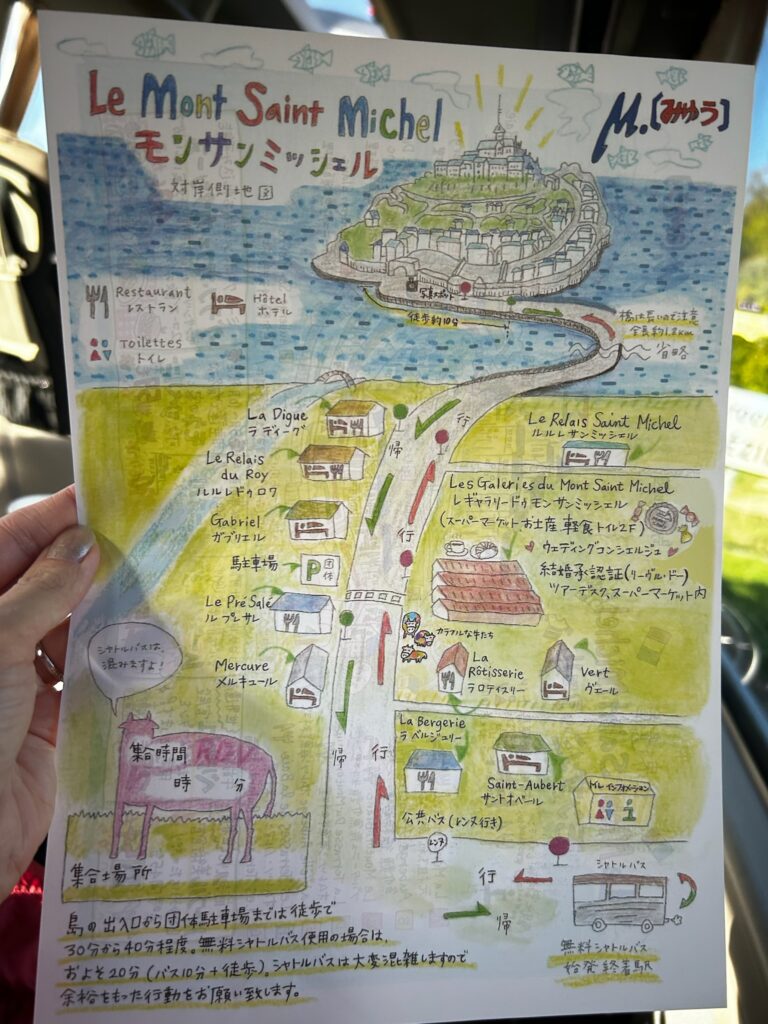 Le Mont Saint Michel
モンサンミッシェル
対岸側地図
M.[みゅう]
Restaurant
レストラン
Hôtel
ホテル
Toilettes
トイレ
写真スポット
徒歩約10分
橋は長いので注意
全長約1.2km
省略
La Digue
ラ ディーグ
帰
行
Le Relais Saint Michel
ルルレサンミッシェル
Le Relais
du Roy
ルルレドゥロワ
Les Galeries du Mont Saint Michel
レギャラリードゥモンサンミッシェル
(スーパーマーケットお土産 軽食トイレ2F)
ウェディングコンシェルジュ
結婚承認証(リーヴル・ドー)
ツアーデスク、スーパーマーケット内
Gabriel
ガブリエル
行
駐車場
P団体
Le Pré Salé
ル プレサレ
カラフルな牛たち
Mercure
メルキュール
La
Rôtisserie
ラロティスリー
Vert
ヴェール
シャトルバスは、
混みますよ!
La Bergerie
ラベルジュリー
帰
行
Saint-Aubert
サントオベール
トイレインフォメーション
i
集合時間 RDV
時 分
公共バス(レンヌ行き)
レンヌ
集合場所
シャトルバス
行
帰
無料シャトルバス
始発終着駅
島の出入口から団体駐車場までは徒歩で
30分から40分程度。無料シャトルバス使用の場合は、
およそ20分(バス10分+徒歩)。シャトルバスは大変混雑しますので
余裕をもった行動をお願い致します。